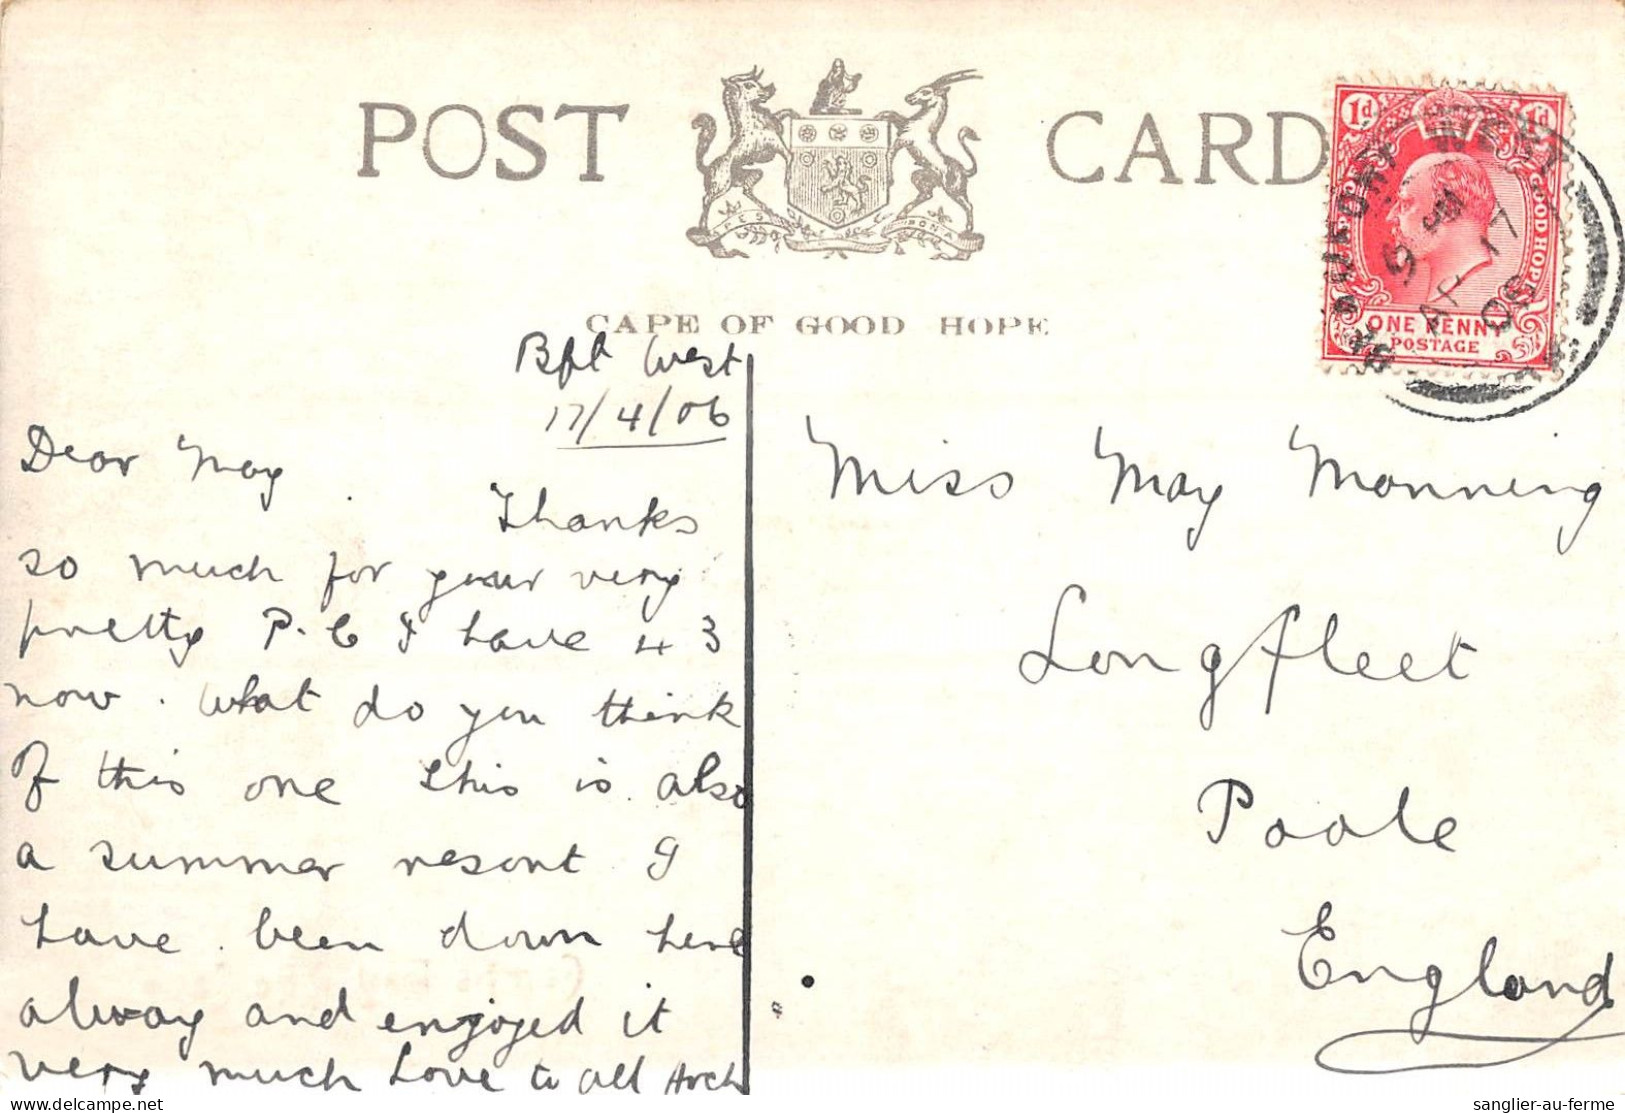 POST CARD
PAES BONA
CAPE OF GOOD HOPE
1d 1d
GOOD HOPE
ONE PENNY
POSTAGE
BEAUFORT WEST
AP 17
06
Bft West
17/4/06
Dear May.
Thanks
so much for your very
pretty P.C I have 43
now. What do you think
of this one this is also
a summer resort I
have been down here
alway and enjoyed it
very much Love to all Arch
Miss May Manning
Longfleet
Poole
England
sanglier-au-ferme